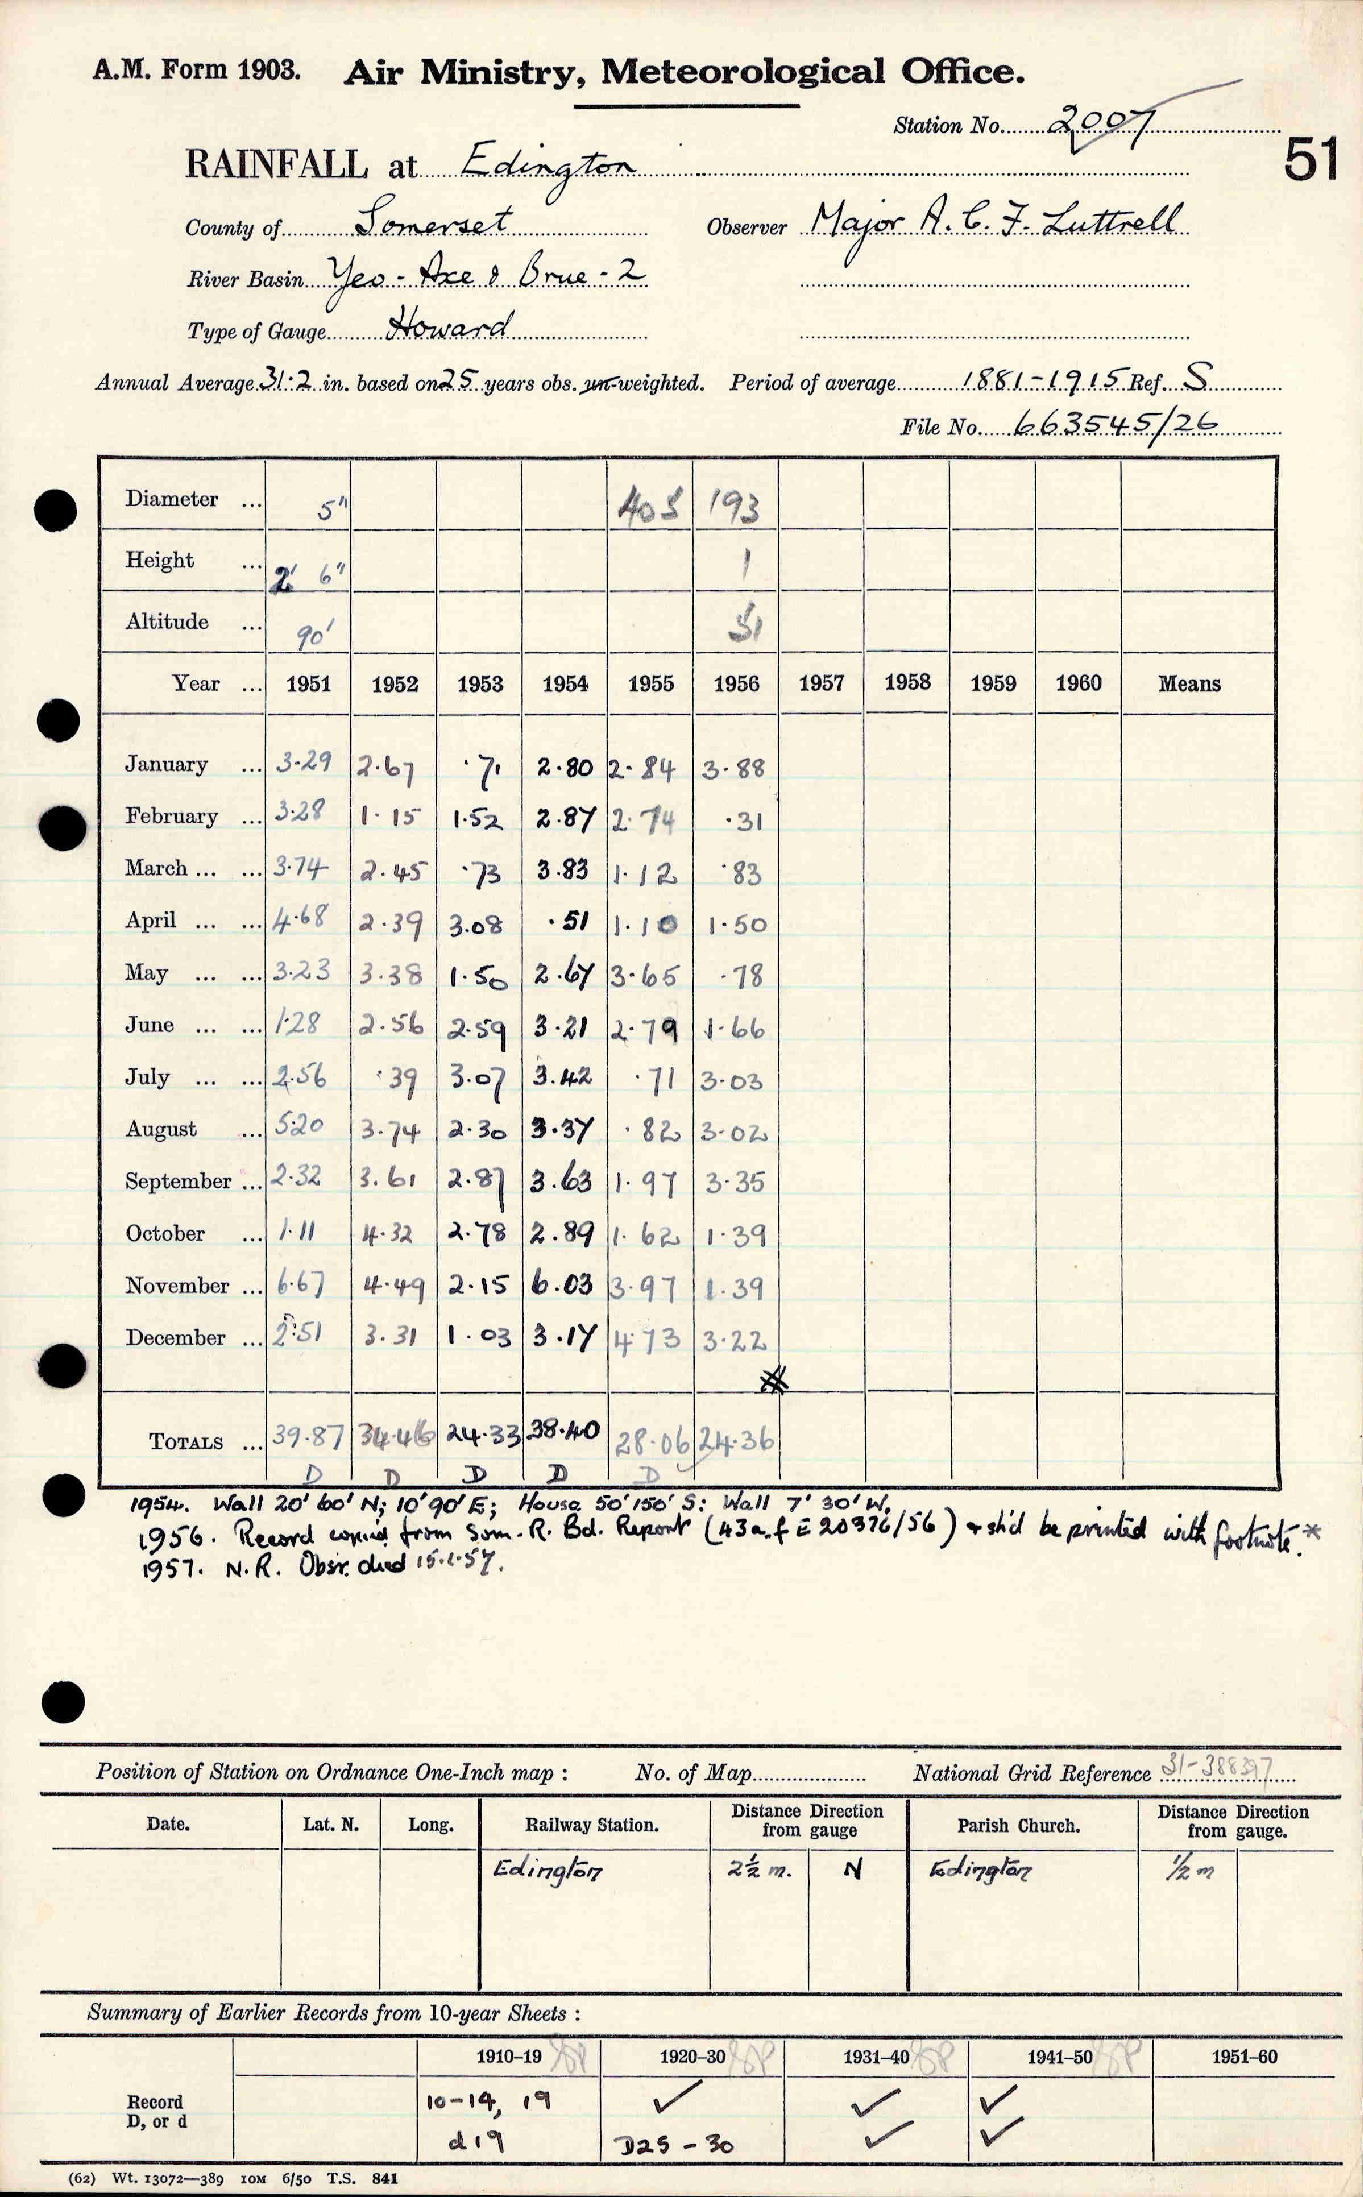 A.M. Form 1903. Air Ministry, Meteorological Office.
Station No. 2007
51
RAINFALL at Edington
County of Somerset Observer Major A. C. F. Luttrell
River Basin Yeo - Axe & Brue - 2
Type of Gauge Howard
Annual Average 31.2 in. based on 25 years obs. un-weighted. Period of average 1881-1915 Ref. S
File No. 663545/26
Diameter ... 5" 405 193
Height ... 2' 6" 1
Altitude ... 90' 51
Year ... 1951 1952 1953 1954 1955 1956 1957 1958 1959 1960 Means
January ... 3.29 2.67 .71 2.80 2.84 3.88
February ... 3.28 1.15 1.52 2.87 2.74 .31
March ... ... 3.74 2.45 .73 3.83 1.12 .83
April ... ... 4.68 2.39 3.08 .51 1.10 1.50
May ... ... 3.23 3.38 1.50 2.67 3.65 .78
June ... ... 1.28 2.56 2.59 3.21 2.79 1.66
July ... ... 2.56 .39 3.07 3.42 .71 3.03
August ... 5.20 3.74 2.30 3.37 .82 3.02
September ... 2.32 3.61 2.87 3.63 1.97 3.35
October ... 1.11 4.32 2.78 2.89 1.62 1.39
November ... 6.67 4.49 2.15 6.03 3.97 1.39
December ... 2.51 3.31 1.03 3.17 4.73 3.22
TOTALS ... 39.87 34.46 24.33 38.40 28.06 24.36
D D D D D
1954. Wall 20' 60' N; 10' 90' E; House 50' 150' S: Wall 7' 30' W.
1956. Record copied from Som. R. Bd. Report (43a f E 20376/56) & sh'd be printed with footnote.*
1957. N.R. Obsr. died 15.1.57.
Position of Station on Ordnance One-Inch map : No. of Map National Grid Reference 31-388397
Date. Lat. N. Long. Railway Station. Distance Direction from gauge Parish Church. Distance Direction from gauge.
Edington 2½ m. N Edington ½ m
Summary of Earlier Records from 10-year Sheets :
1910-19 1920-30 1931-40 1941-50 1951-60
Record 10-14, 19 ✓ ✓ ✓
D, or d d19 D25-30 ✓ ✓
(62) Wt. 13072—389 10M 6/50 T.S. 841